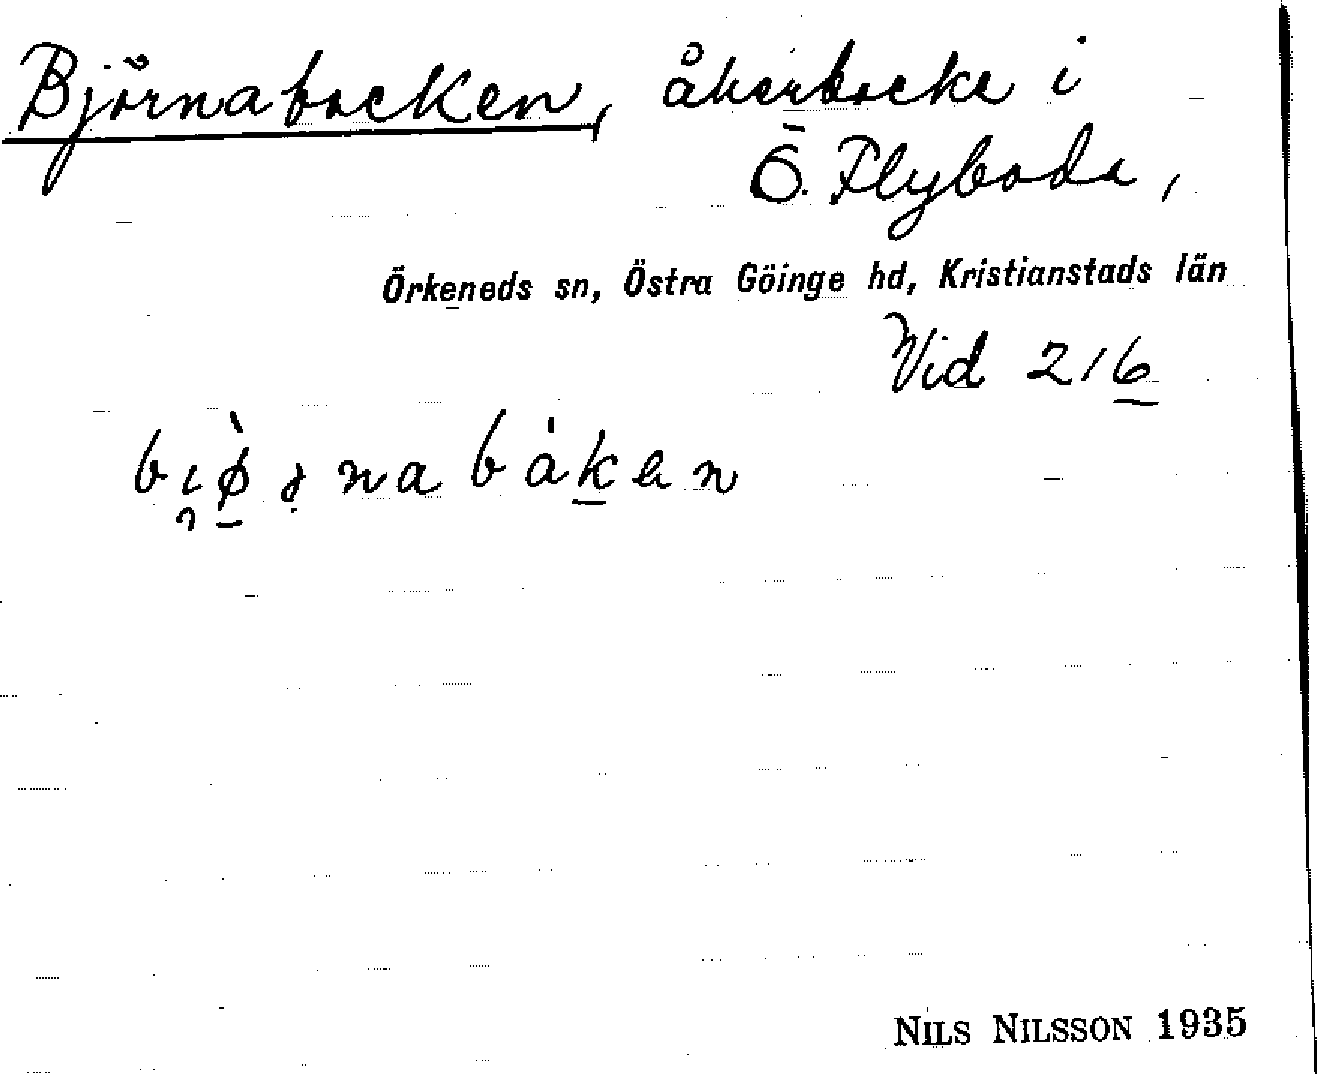 Björnabocken, åkerbacke i
Ö. Flyboda,
Örkeneds sn, Östra Göinge hd, Kristianstads län
Vid 216
NILS NILSSON 1935